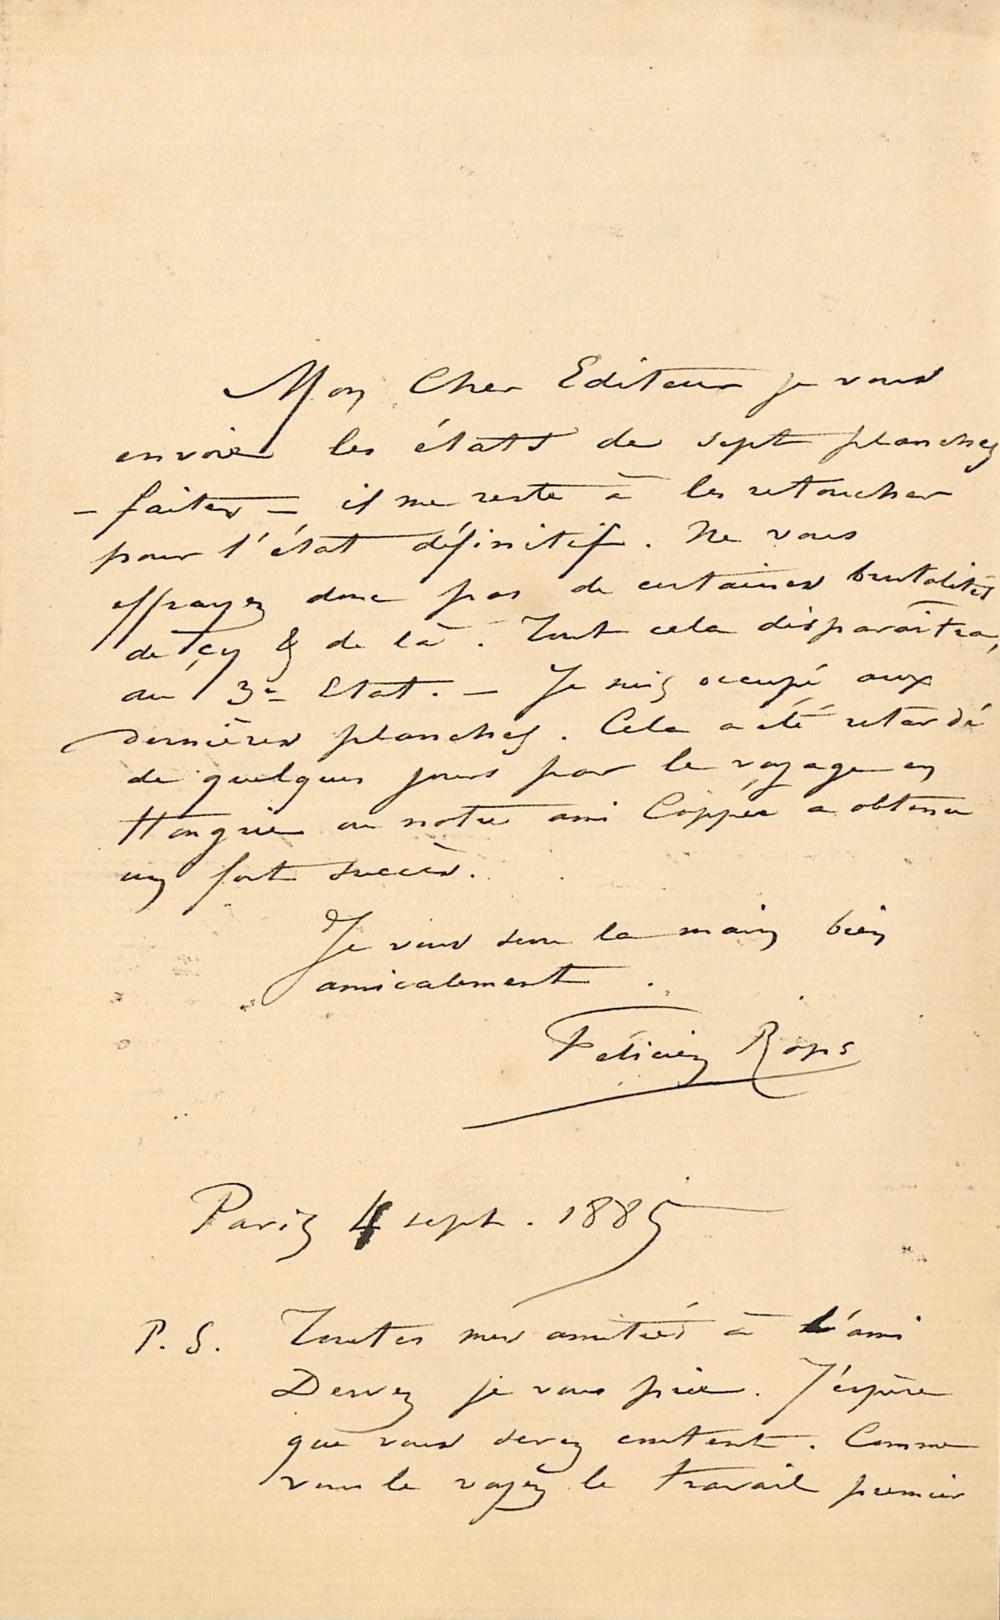 Mon Cher Editeur je vous
envoie les états de sept planches
– faites – il me reste à les retoucher
pour l'état définitif. Ne vous
effrayez donc pas de certaines brutalités
de çy & de là. Tout cela disparaîtra,
au 3e Etat. – Je suis occupé aux
dernières planches. Cela a été retardé
de quelques jours par le voyage en
Hongrie ou notre ami Coppée a obtenu
un fort succès.
Je vous serre la main bien
amicalement.
Félicien Rops
Paris 4 sept. 1885
P.S. Toutes mes amitiés à l'ami
je vous prie. J'espère
que vous serez content. Comme
vous le voyez le travail premier